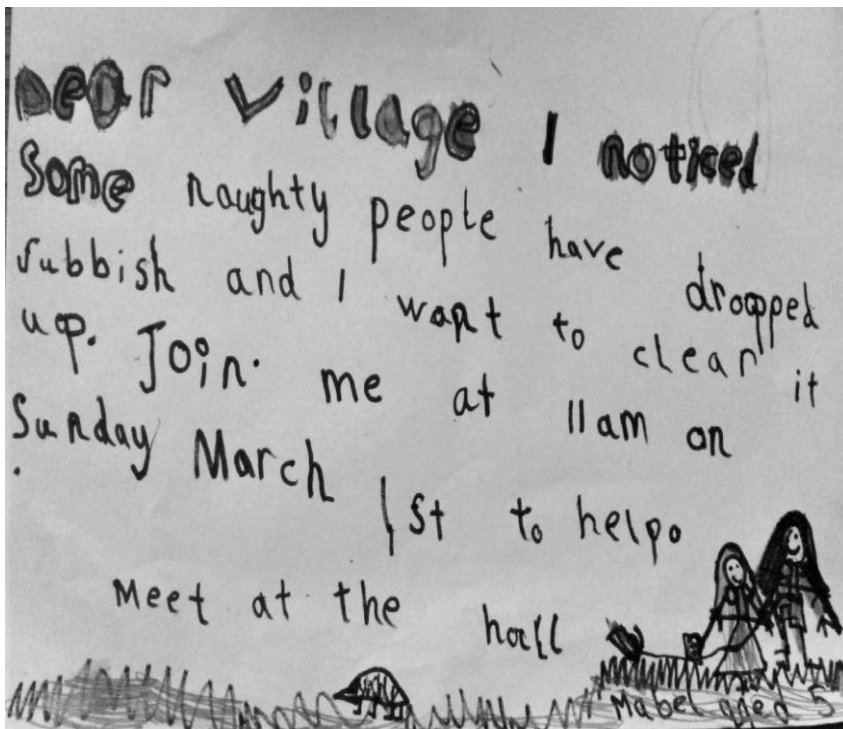 Dear Village I noticed
Some naughty people have dropped
rubbish and I want to clear it
up. Join. me at 11am on
Sunday March 1st to help.
Meet at the hall
Mabel aged 5